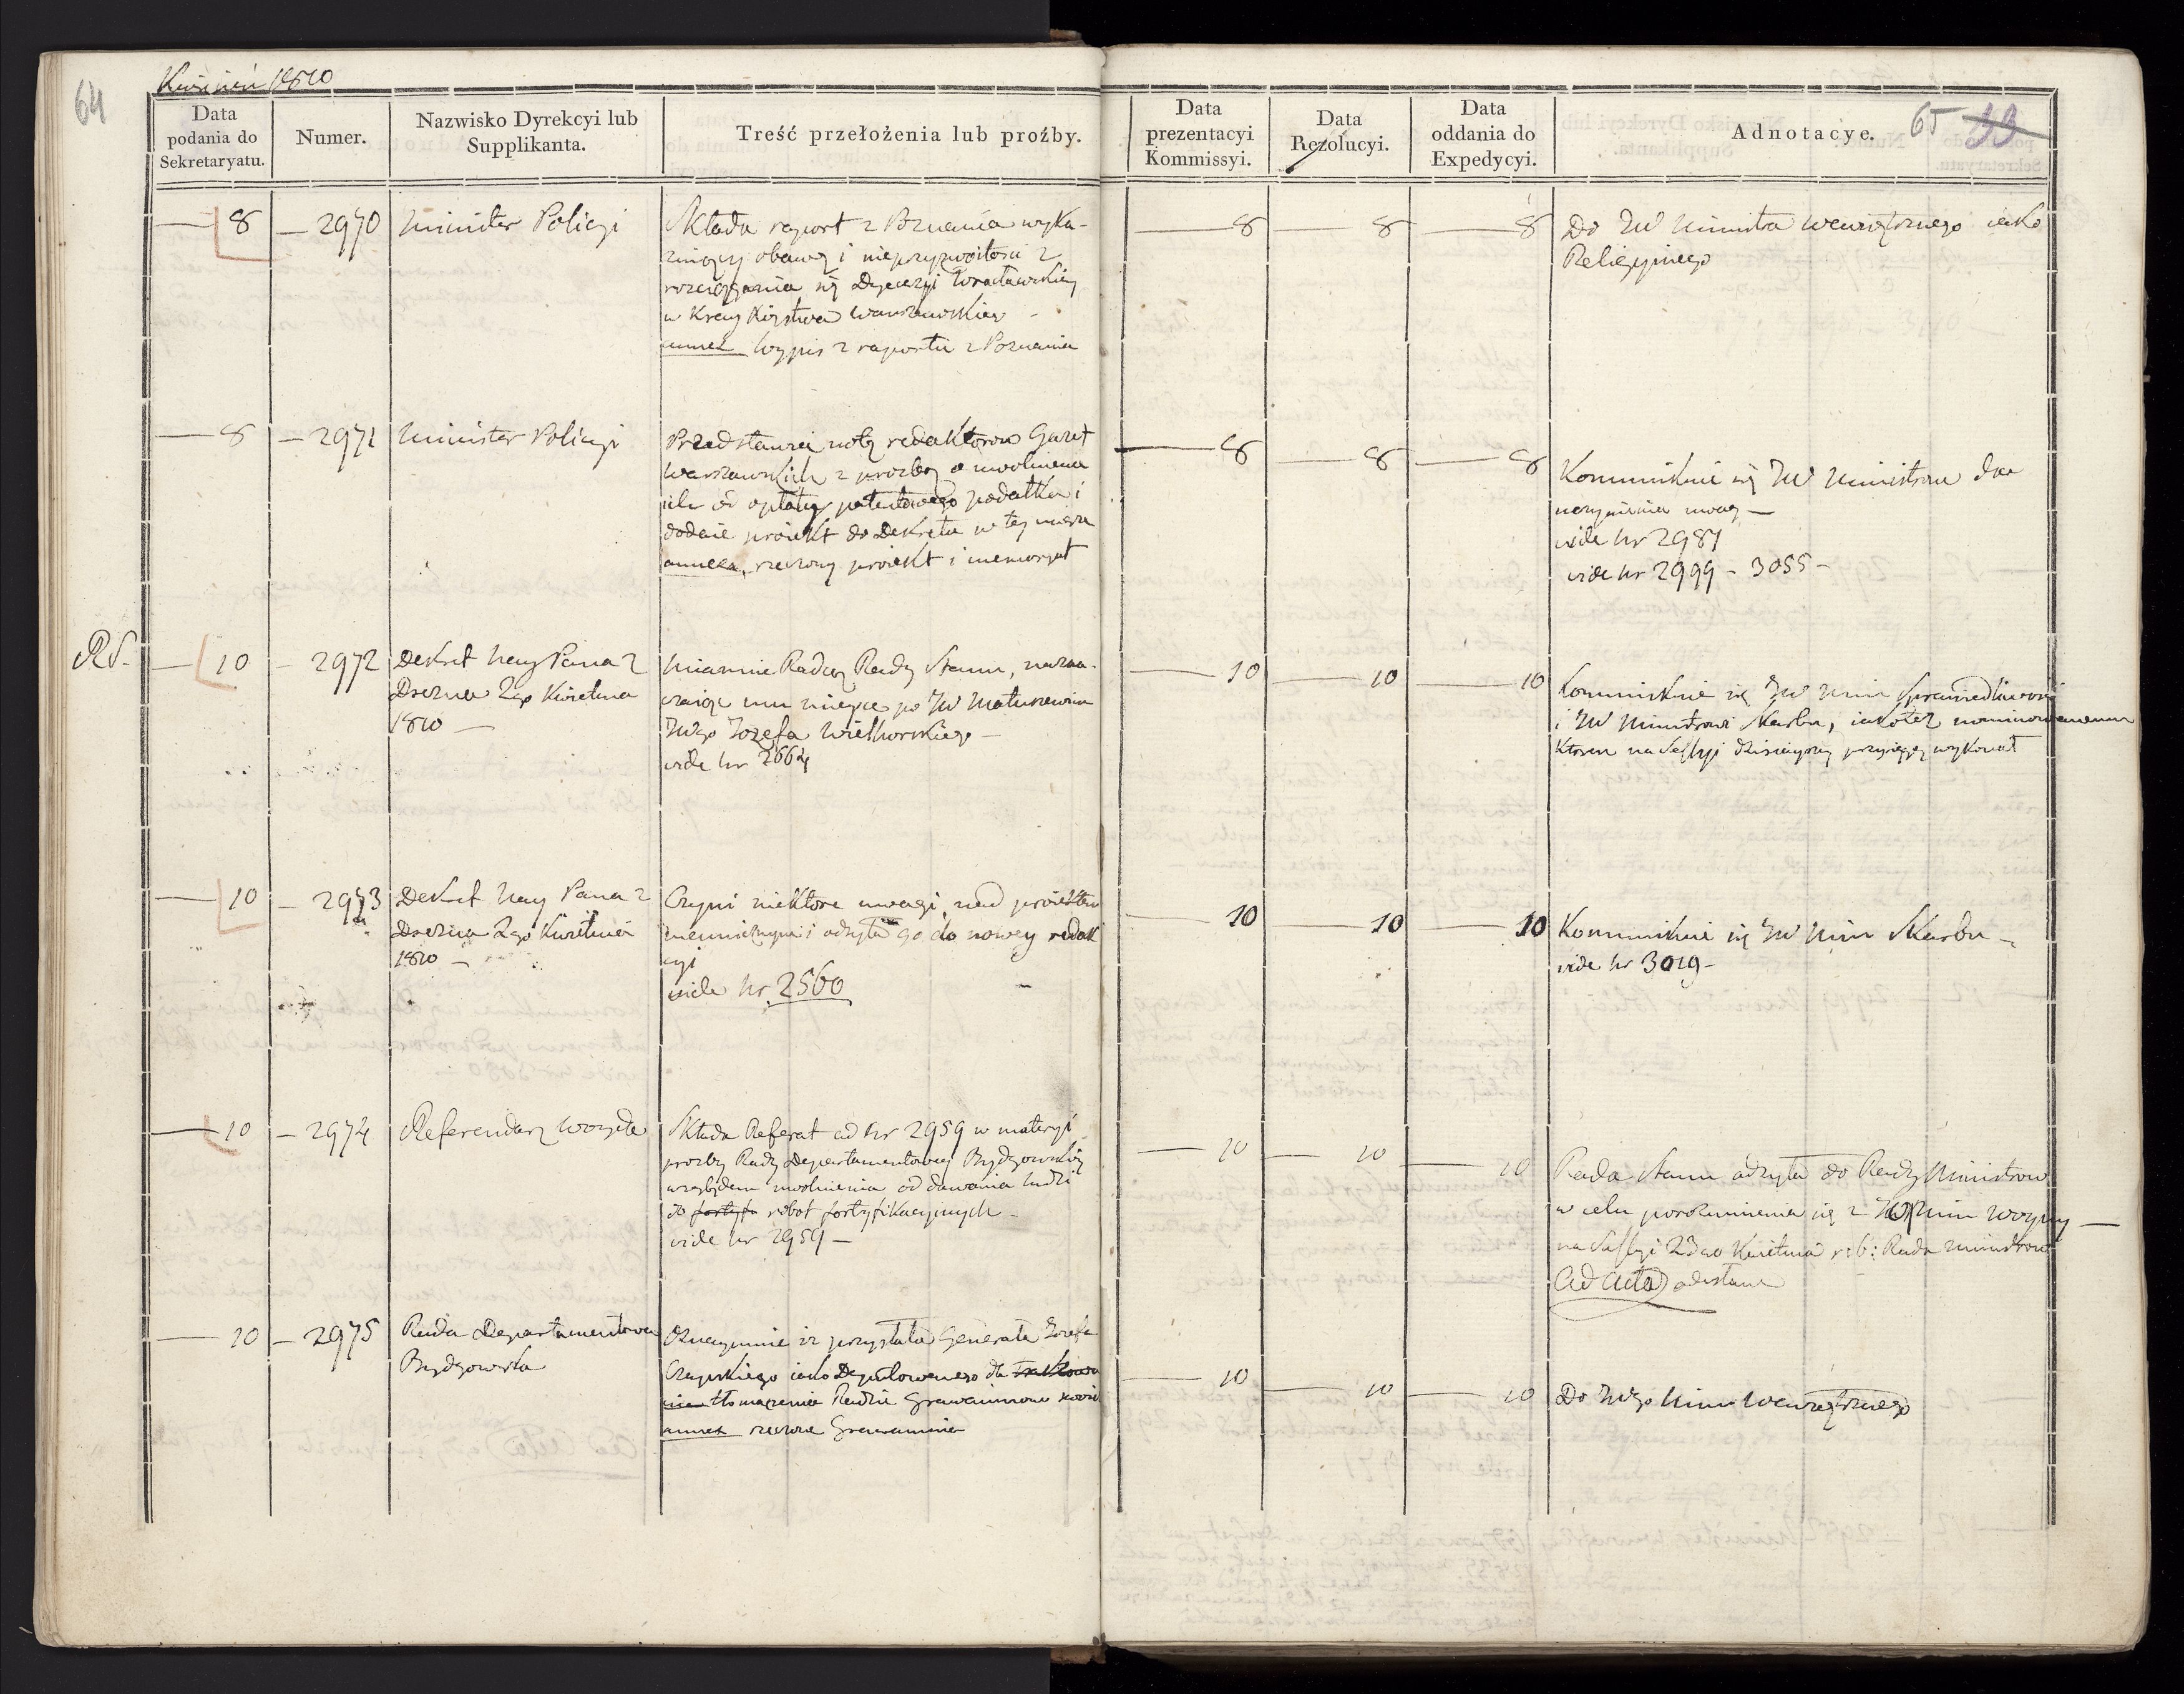 64
Kwiecień 1810
Data
podania do
Sekretaryatu.
Numer.
Nazwisko Dyrekcyi lub
Supplikanta.
Treść przełożenia lub proźby.
Data
prezentacyi
Kommissyi.
Data
Rezolucyi.
Data
oddania do
Expedycyi.
Adnotacye.
65 33
8 — 2970 Minister Policyi
Składa raport z Poznania wyka-
zuiący obawę i nieprzyzwoitości z
rozciągania się Dyecezyi Wrocławskiey
w Kray Xięstwa Warszawskiego
annex Wypis z raportu z Poznania
8 8 8
Do JW Ministra Wewnętrznego iako
Religiynego
8 — 2971 Minister Policyi
Przedstawia notę redaktorow Gazet
Warszawskich z prozbą o uwolnienie
ich od opłaty patentowego podatku i
dodaie proiekt do Dekretu w tey mierze
annexa, rzeczony proiekt i memoryał
8 8 8
Kommunikuie się JW Ministrom dla
uczynienia uwag —
vide Nr 2981
vide Nr 2999 - 3055 -
RS.
10 — 2972 Dekret Nay Pana z
Drezna 2go Kwietnia
1810 —
Mianuie Radcą Rady Stanu, nazna-
czaiąc mu mieysce po JW Matuszewicu
JWgo Jozefa Wielhorskiego —
vide Nr 2664
10 10 10
Kommunikuie się JW Min Sprawiedliwości
i JW Ministrowi Skarbu, iakoteż nominowanemu
ktoren na Sessyi dzisieyszey przysięgę wykonał
10 — 2973 Dekret Nay Pana z
Drezna 2go Kwietnia
1810 —
Czyni niektore uwagi nad proiektem
mennicznym i odsyła go do nowey redak
cyi
vide Nr 2560
10 10 10
Kommunikuie się JW Min Skarbu -
vide Nr 3019 -
10 — 2974 Referendarz Woyda
Składa Referat ad Nr 2959 w materyi
prozby Rady Departamentowey Bydgowskiey
względem uwolnienia od dawania ludzi
do fortyfi robot fortyfikacyinych —
vide Nr 2959 —
10 10 10
Rada Stanu odsyła do Rady Ministrow
w celu porozumienia się z JW Min Woyny —
na Sessyi 23go Kwietnia r: b: Rada Ministrow
Ad Acta odesłane
10 — 2975 Rada Departamentowa
Bydgowska
Oznaymuie iż przysłała Generała Jozefa
Czapskiego iako Deputowanego dla
tłomaczenia Radzie Grawaminow
annex rzeczone Gravamina
10 10 10
Do JWgo Min Wewnętrznego